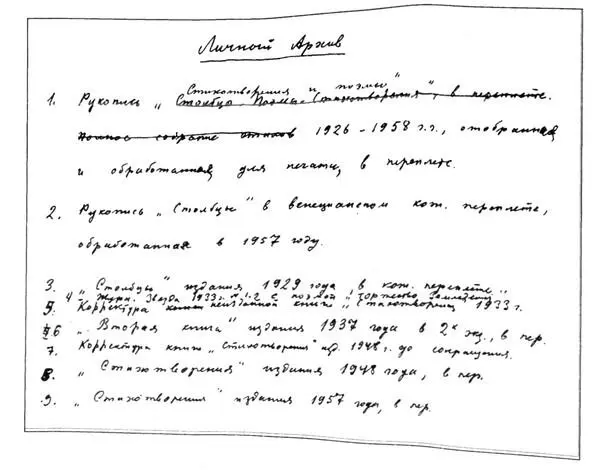 Личный Архив
Стихотворения и поэмы"
1. Рукопись „Столбцы Поэмы Стихотворения", в переплете.
Полное собрание стихов 1926 - 1958 г.г., отобранная
и обработанная для печати, в переплете.
2. Рукопись „Столбцы" в венецианском кож. переплете,
обработанная в 1957 году.
3. „Столбцы" издания 1929 года, в кож. переплете
4 Журн. Звезда 1933 г. № 1.2 с поэмой „Торжество Земледелия
5. Корректура неизданной книги „Стихотворения 1933 г.
6 „Вторая книга" издания 1937 года в 2х экз., в пер.
7. Корректура книги „Стихотворения" изд. 1948 г. до сокращения.
8. „Стихотворения" издания 1948 года, в пер.
9. „Стихотворения" издания 1957 года, в пер.